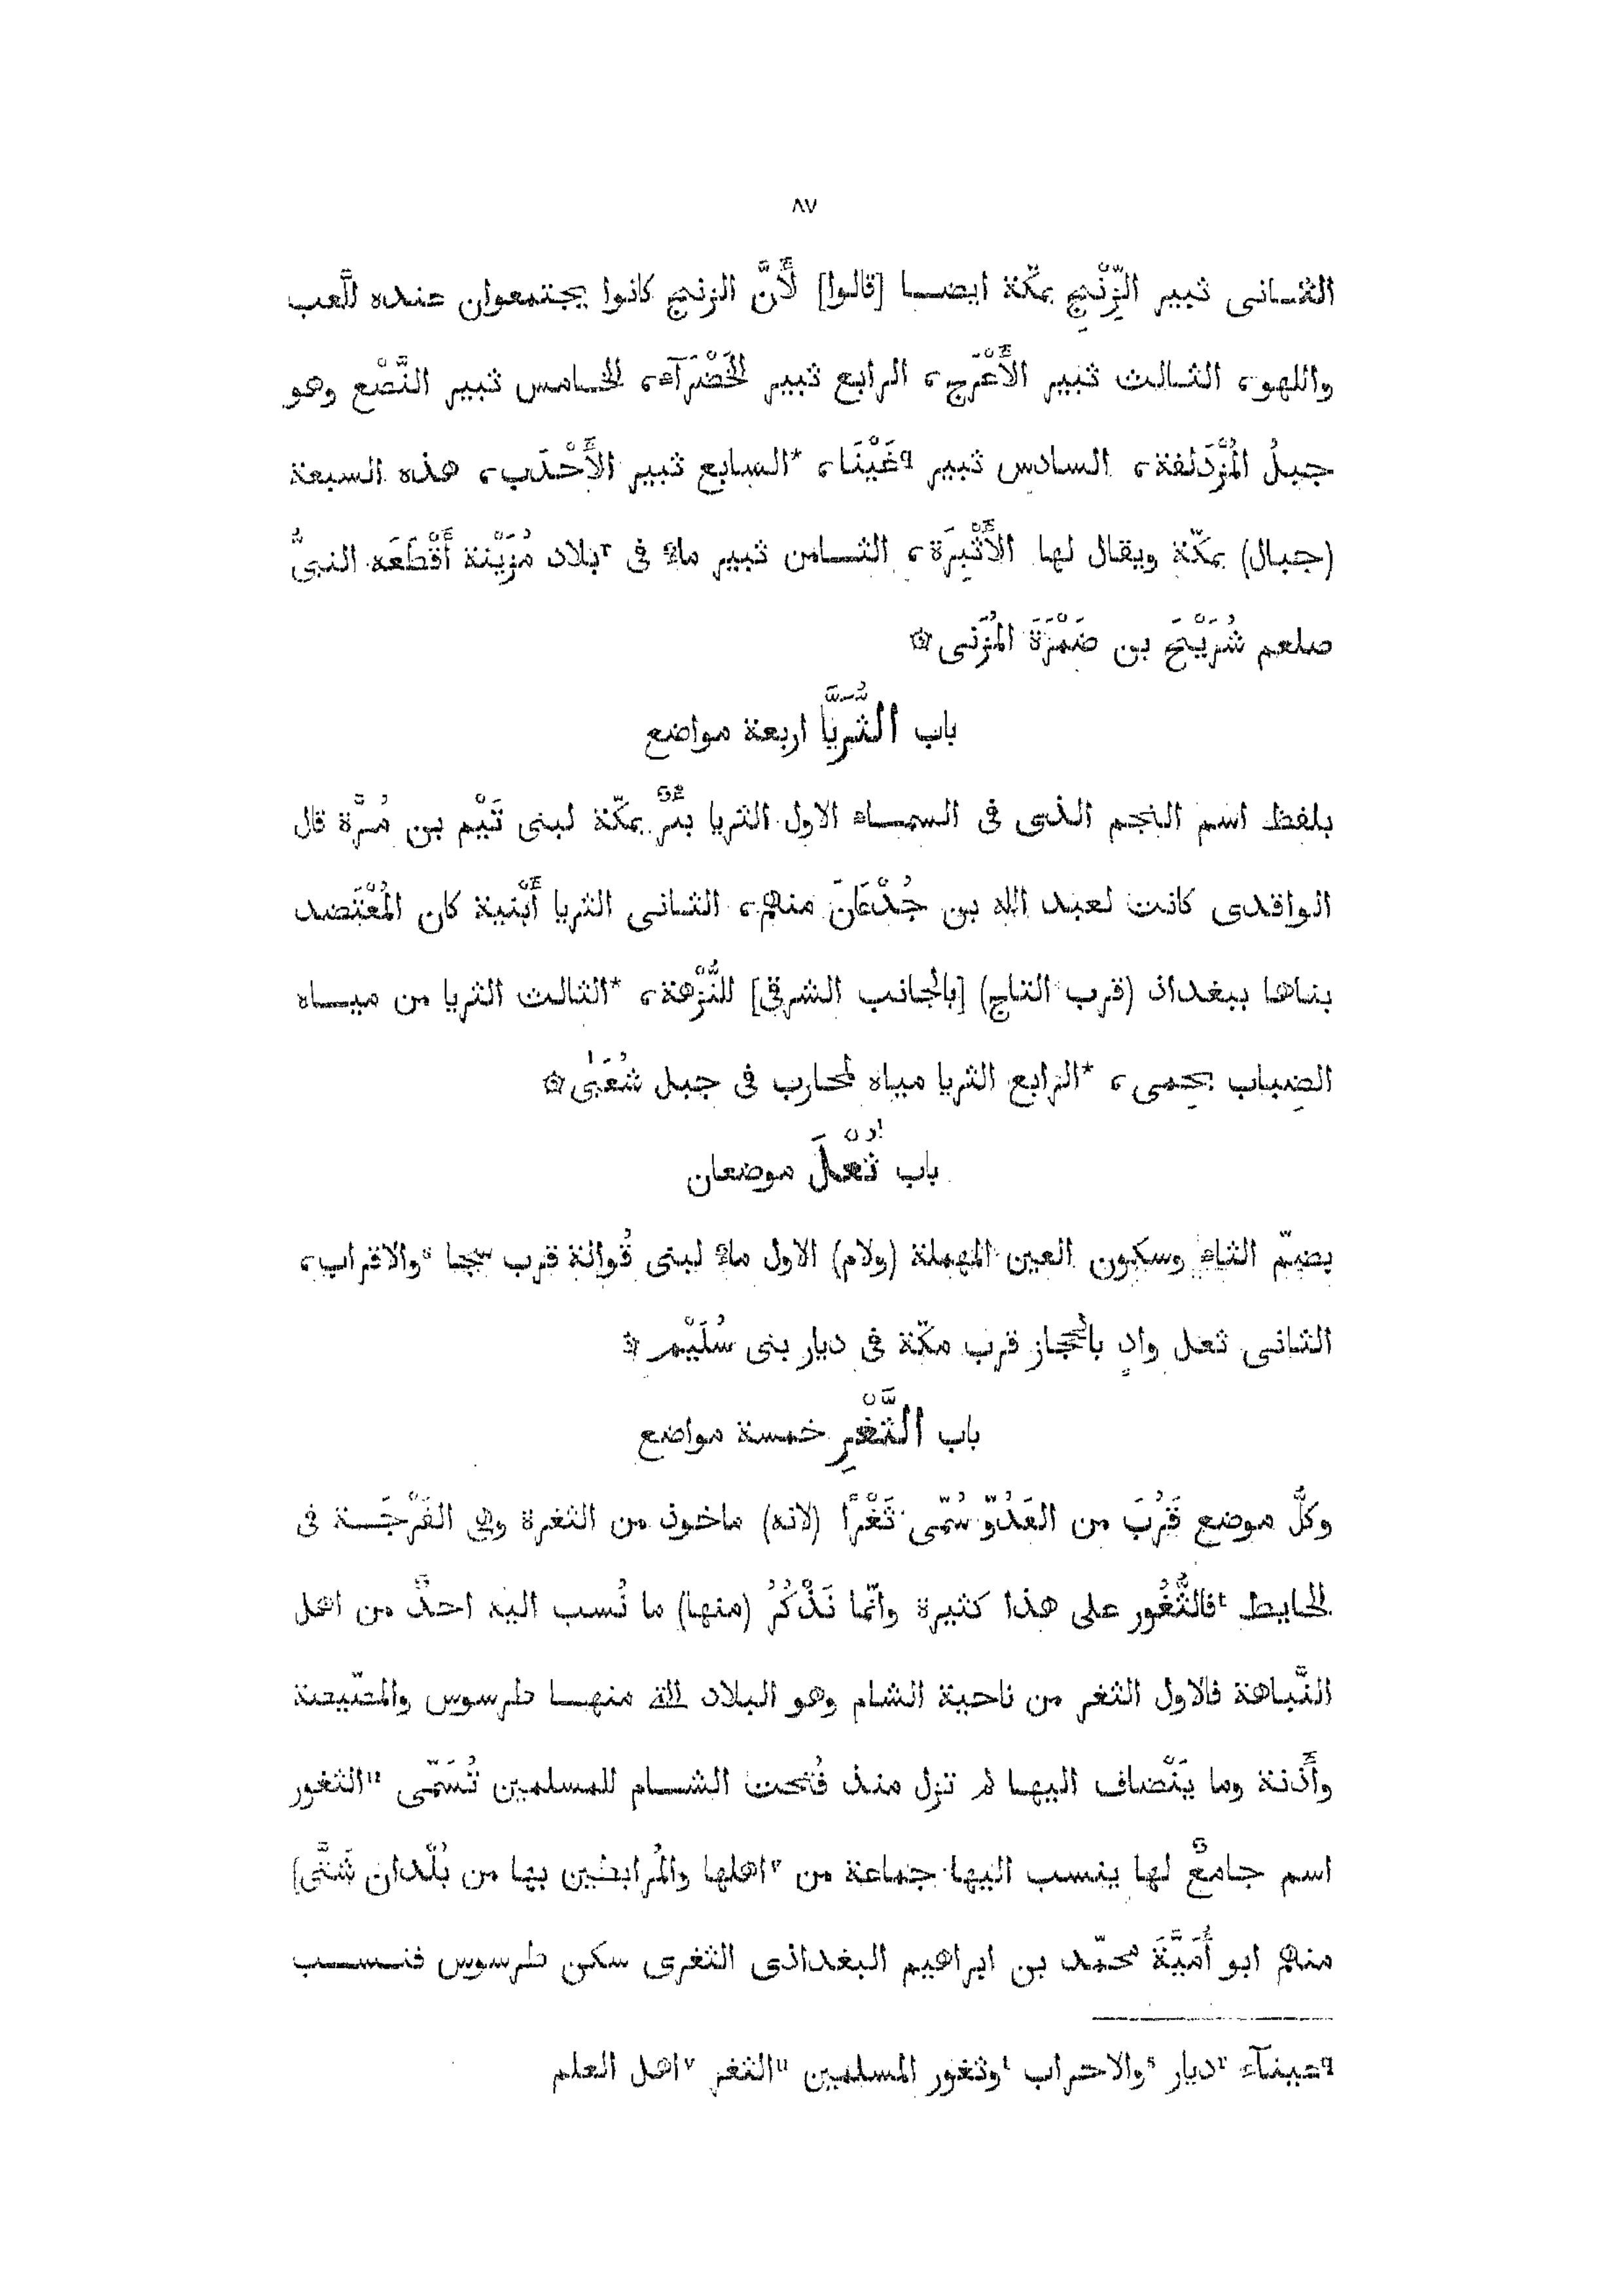 ٨٧
الثانى ثبير الزِّنْجِ بمكّة ايضا [قالوا] لأَنَّ الزنج كانوا يجتمعوان عنده للَّعب
واللهو، الثالث ثبير الأَعْرَج، الرابع ثبير الخَضْرَآء، الخامس ثبير النَّصْع وهو
جبلُ المُزْدَلفة، السادس ثبير qغَيْنَا، *السابع ثبير الأَحْدَب، هذه السبعة
(جبال) بمكّة ويقال لها الأَثْبِرَة، الثامن ثبير ماء فى rبلاد مُزَيْنة أَقْطَعَه النبىُّ
صلعم شُرَيْحَ بن ضَمْرَةَ المُزَنى ۞
باب الثُّرَيَّا اربعة مواضع
بلفظ اسم النجم الذى فى السماء الاول الثريا بئرٌ بمكّة لبنى تَيْم بن مُرَّة قال
الواقدى كانت لعبد الله بن جُدْعَانَ منهم، الثانى الثريا أَبْنية كان المُعْتَضد
بناها ببغداذ (قرب التاج) [بالجانب الشرقى] للنُّزْهة، *الثالث الثريا من مياه
الضِباب بحِمى، *الرابع الثريا مياه لمحارب فى جبل شُعَبَى ۞
باب ثُعْلَ موضعان
بضمّ الثاء وسكون العين المهملة (ولام) الاول ماء لبنى قُوالة قرب سجا sوالاقراب،
الثانى ثعل وادٍ بالحجاز قرب مكّة فى ديار بنى سُلَيْم ۞
باب الثَّغْرِ خمسة مواضع
وكلُّ موضع قَرُبَ من العَدُوّ سُمّى ثَغْرًا (لانه) ماخوذ من الثغرة وهى الفَرْجَة فى
الحايط tفالثُّغُور على هذا كثيرة وانّما نَذْكُرُ (منها) ما نُسب اليه احدٌ من اهل
النَّباهة فالاول الثغر من ناحية الشام وهو البلاد التى منها طرسوس والمصّيصة
وأَذنة وما يَنْضاف اليها لم تزل منذ فُتحت الشام للمسلمين تُسَمّى uالثغور
اسم جامعٌ لها ينسب اليها جماعة من vاهلها والمُرابطين بها من بُلْدان شَتَّى)
منهم ابو أُمَيَّةَ محمّد بن ابراهيم البغداذى الثغرى سكن طرسوس فنسب
qحبينآء rديار sوالاحراب tوثغور المسلمين uالثغر vاهل العلم